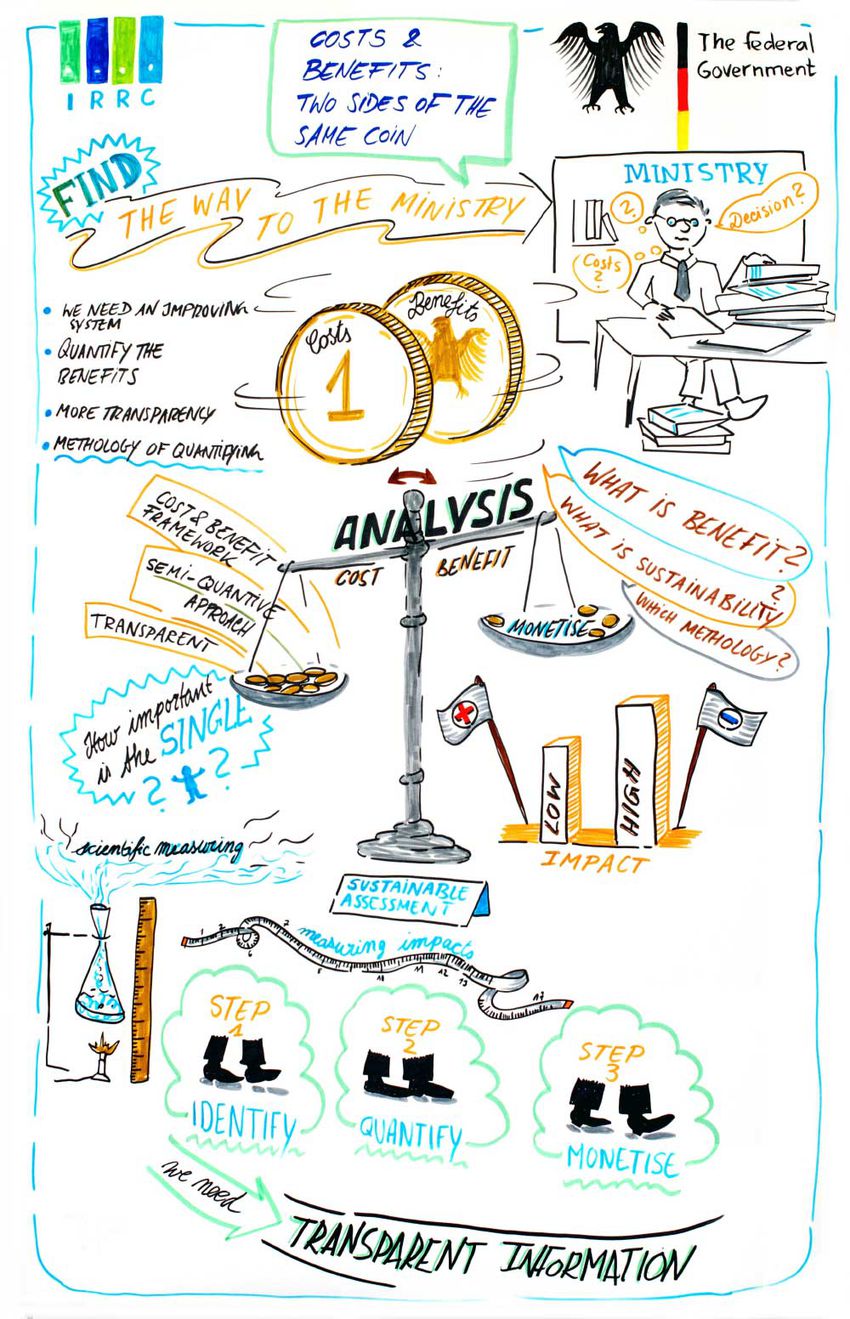 IRRC
COSTS &
BENEFITS:
TWO SIDES OF THE
SAME COIN
The Federal
Government
FIND
THE WAY TO THE MINISTRY
MINISTRY
?
Decision?
Costs
?
• WE NEED AN IMPROVING
SYSTEM
• QUANTIFY THE
BENEFITS
• MORE TRANSPARENCY
• METHOLOGY OF QUANTIFYING
Costs
1
Benefits
ANALYSIS
COST
BENEFIT
COST & BENEFIT
FRAMEWORK
SEMI-QUANTIVE
APPROACH
TRANSPARENT
MONETISE
WHAT IS BENEFIT?
WHAT IS SUSTAINABILITY
?
WHICH METHOLOGY?
How important
is the SINGLE
? ?
LOW
HIGH
IMPACT
scientific measuring
SUSTAINABLE
ASSESSMENT
measuring impacts
STEP
1
IDENTIFY
STEP
2
QUANTIFY
STEP
3
MONETISE
we need
TRANSPARENT INFORMATION